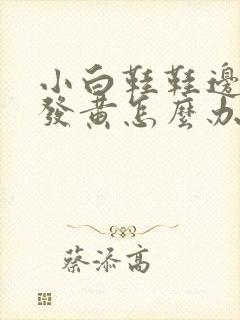 小白鞋鞋邊
發黃怎麼办
蔡添高